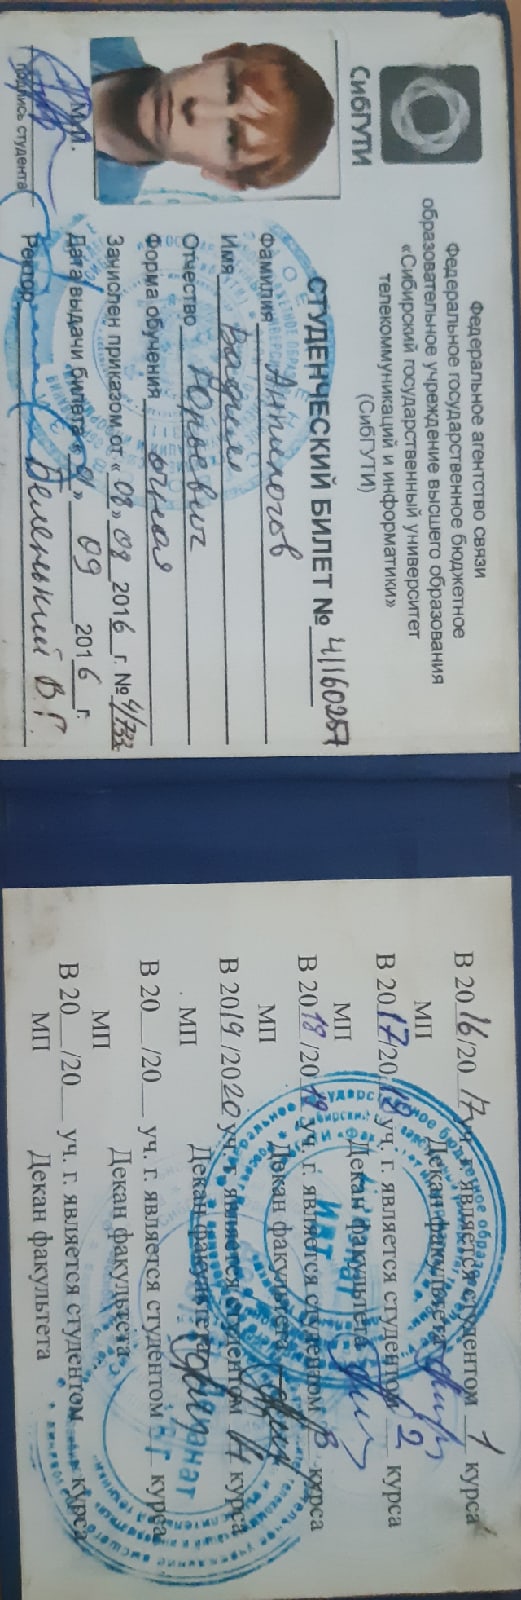 СибГУТИ
Федеральное агентство связи
Федеральное государственное бюджетное
образовательное учреждение высшего образования
«Сибирский государственный университет
телекоммуникаций и информатики»
(СибГУТИ)
СТУДЕНЧЕСКИЙ БИЛЕТ № 41160257
Фамилия Антипогов
Имя Вадим
Отчество Юрьевич
Форма обучения очная
Зачислен приказом от «08» 08 2016 г. № 4/733
Дата выдачи билета «01» 09 2016 г.
Ректор Беленький В.Г.
М.П.
подпись студента
В 2016/2017 уч. г. является студентом 1 курса
МП Декан факультета
В 2017/2018 уч. г. является студентом 2 курса
МП Декан факультета
В 2018/2019 уч. г. является студентом 3 курса
МП Декан факультета
В 2019/2020 уч. г. является студентом 4 курса
МП Декан факультета
В 20__/20__ уч. г. является студентом __ курса
МП Декан факультета
В 20__/20__ уч. г. является студентом __ курса
МП Декан факультета
ИВТ
Деканат